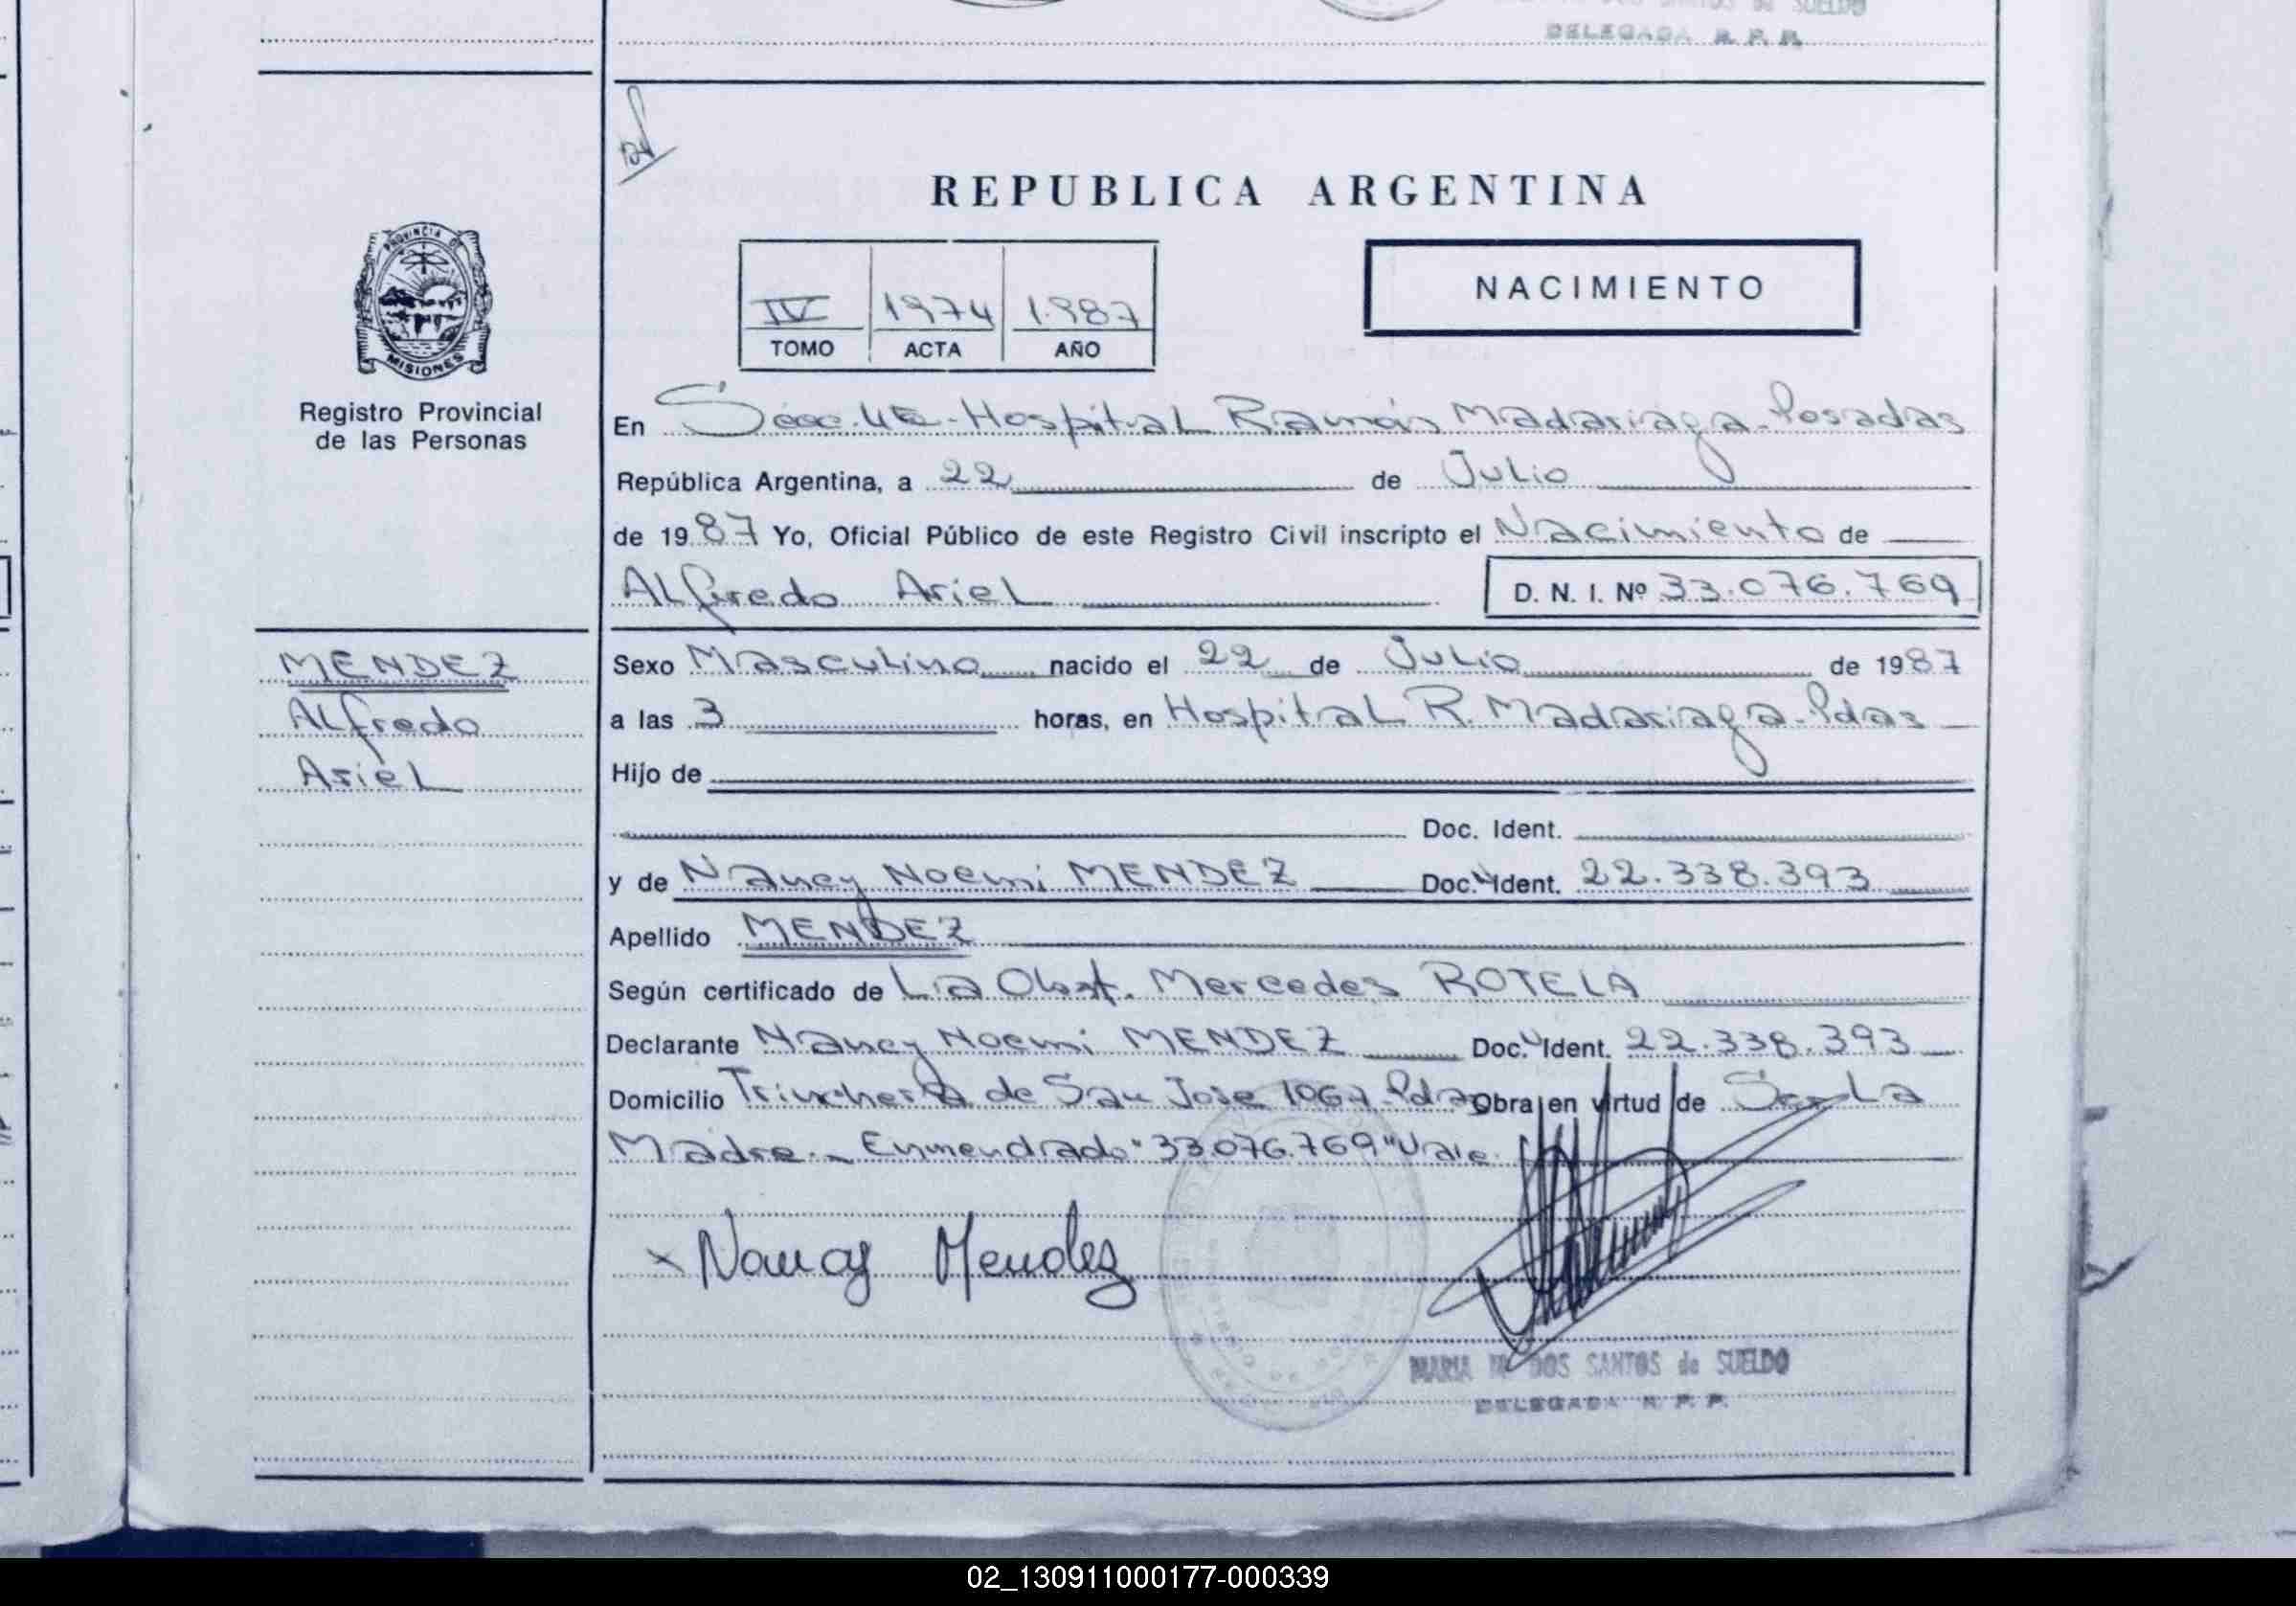 DELEGADA R. P. P.
REPUBLICA ARGENTINA
IV 1974 1987
TOMO ACTA AÑO
NACIMIENTO
PROVINCIA DE
MISIONES
Registro Provincial
de las Personas
En Secc. 4ª - Hospital Ramón Madariaga - Posadas
República Argentina, a 22 de Julio
de 1987 Yo, Oficial Público de este Registro Civil inscripto el Nacimiento de
Alfredo Ariel D. N. I. Nº 33.076.769
MENDEZ
Alfredo
Ariel
Sexo Masculino nacido el 22 de Julio de 1987
a las 3 horas, en Hospital R. Madariaga - Pdas
Hijo de
Doc. Ident.
y de Nancy Noemi MENDEZ Doc. Ident. 22.338.393
Apellido MENDEZ
Según certificado de La Obst. Mercedes ROTELA
Declarante Nancy Noemi MENDEZ Doc. Ident. 22.338.393
Domicilio Trinchera de San Jose 1067 Pdas Obra en virtud de Ser La
Madre. - Enmendado "33.076.769" Vale.
x Nancy Mendez
MARIA DOS SANTOS de SUELDO
DELEGADA R. P. P.
02_130911000177-000339